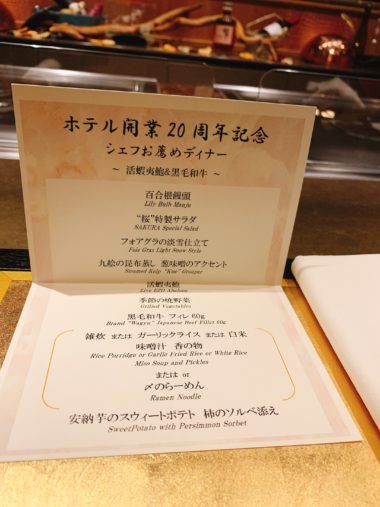 ホテル開業20周年記念
シェフお薦めディナー
～ 活蝦夷鮑&黒毛和牛 ～
百合根饅頭
Lily Bulb Manju
“桜”特製サラダ
SAKURA Special Salad
フォアグラの淡雪仕立て
Foie Gras Light Snow Style
九絵の昆布蒸し 葱味噌のアクセント
Steamed Kelp "Kue" Grouper
活蝦夷鮑
Live EZO Abalone
季節の焼野菜
Grilled Vegetables
黒毛和牛 フィレ 60g
Brand "Wagyu" Japanese Beef Fillet 60g
雑炊 または ガーリックライス または 白米
味噌汁 香の物
Rice Porridge or Garlic Fried Rice or White Rice
Miso Soup and Pickles
または or
〆のらーめん
Ramen Noodle
安納芋のスウィートポテト 柿のソルベ添え
SweetPotato with Persimmon Sorbet